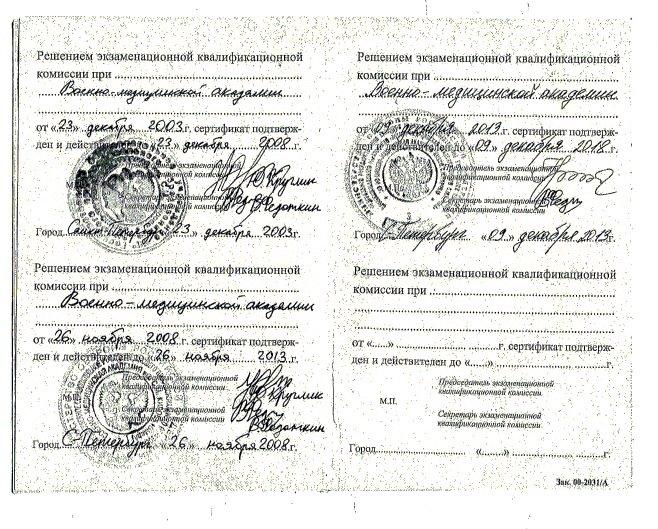 Решением экзаменационной квалификационной
комиссии при
Военно-медицинской академии
от «23» декабря 2003 г. сертификат подтверж-
ден и действителен до «23» декабря 2008 г.
Председатель экзаменационной
квалификационной комиссии
Ю. Круглик
М.П.
Секретарь экзаменационной
квалификационной комиссии
Город Санкт-Петербург «23» декабря 2003 г.
Решением экзаменационной квалификационной
комиссии при
Военно-медицинской академии
от «26» ноября 2008 г. сертификат подтверж-
ден и действителен до «26» ноября 2013 г.
Председатель экзаменационной
квалификационной комиссии
Круглик
М.П.
Секретарь экзаменационной
квалификационной комиссии
Город С-Петербург «26» ноября 2008 г.
Решением экзаменационной квалификационной
комиссии при
Военно-медицинской академии
от «09» декабря 2013 г. сертификат подтверж-
ден и действителен до «09» декабря 2018 г.
Председатель экзаменационной
квалификационной комиссии
Секретарь экзаменационной
квалификационной комиссии
3
Город С-Петербург «09» декабря 2013 г.
Решением экзаменационной квалификационной
комиссии при
от «......» г. сертификат подтверж-
ден и действителен до «......» г.
Председатель экзаменационной
квалификационной комиссии
М.П.
Секретарь экзаменационной
квалификационной комиссии
Город «......» г.
Зак. 00-2031/А